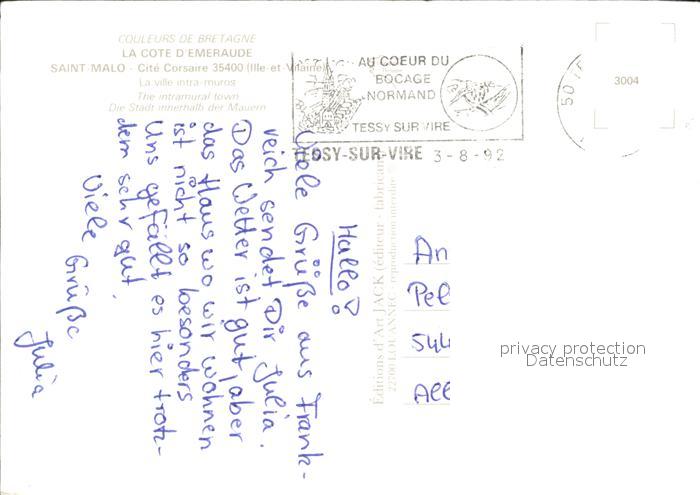 COULEURS DE BRETAGNE
LA COTE D'EMERAUDE
SAINT-MALO - Cité Corsaire 35400 (Ille-et-Vilaine)
La ville intra-muros
The intramural town
Die Stadt innerhalb der Mauern
AU COEUR DU
BOCAGE
NORMAND
TESSY SUR VIRE
TESSY-SUR-VIRE 3-8-92
50
3004
Hallo!
Viele Grüße aus Frank-
reich sendet Dir Julia.
Das Wetter ist gut, aber
das Haus wo wir wohnen
ist nicht so besonders
Uns gefällt es hier trotz-
dem sehr gut.
Viele Grüße
Julia
Éditions d'Art JACK (éditeur - fabricant
An
Pel
544
All
privacy protection
Datenschutz